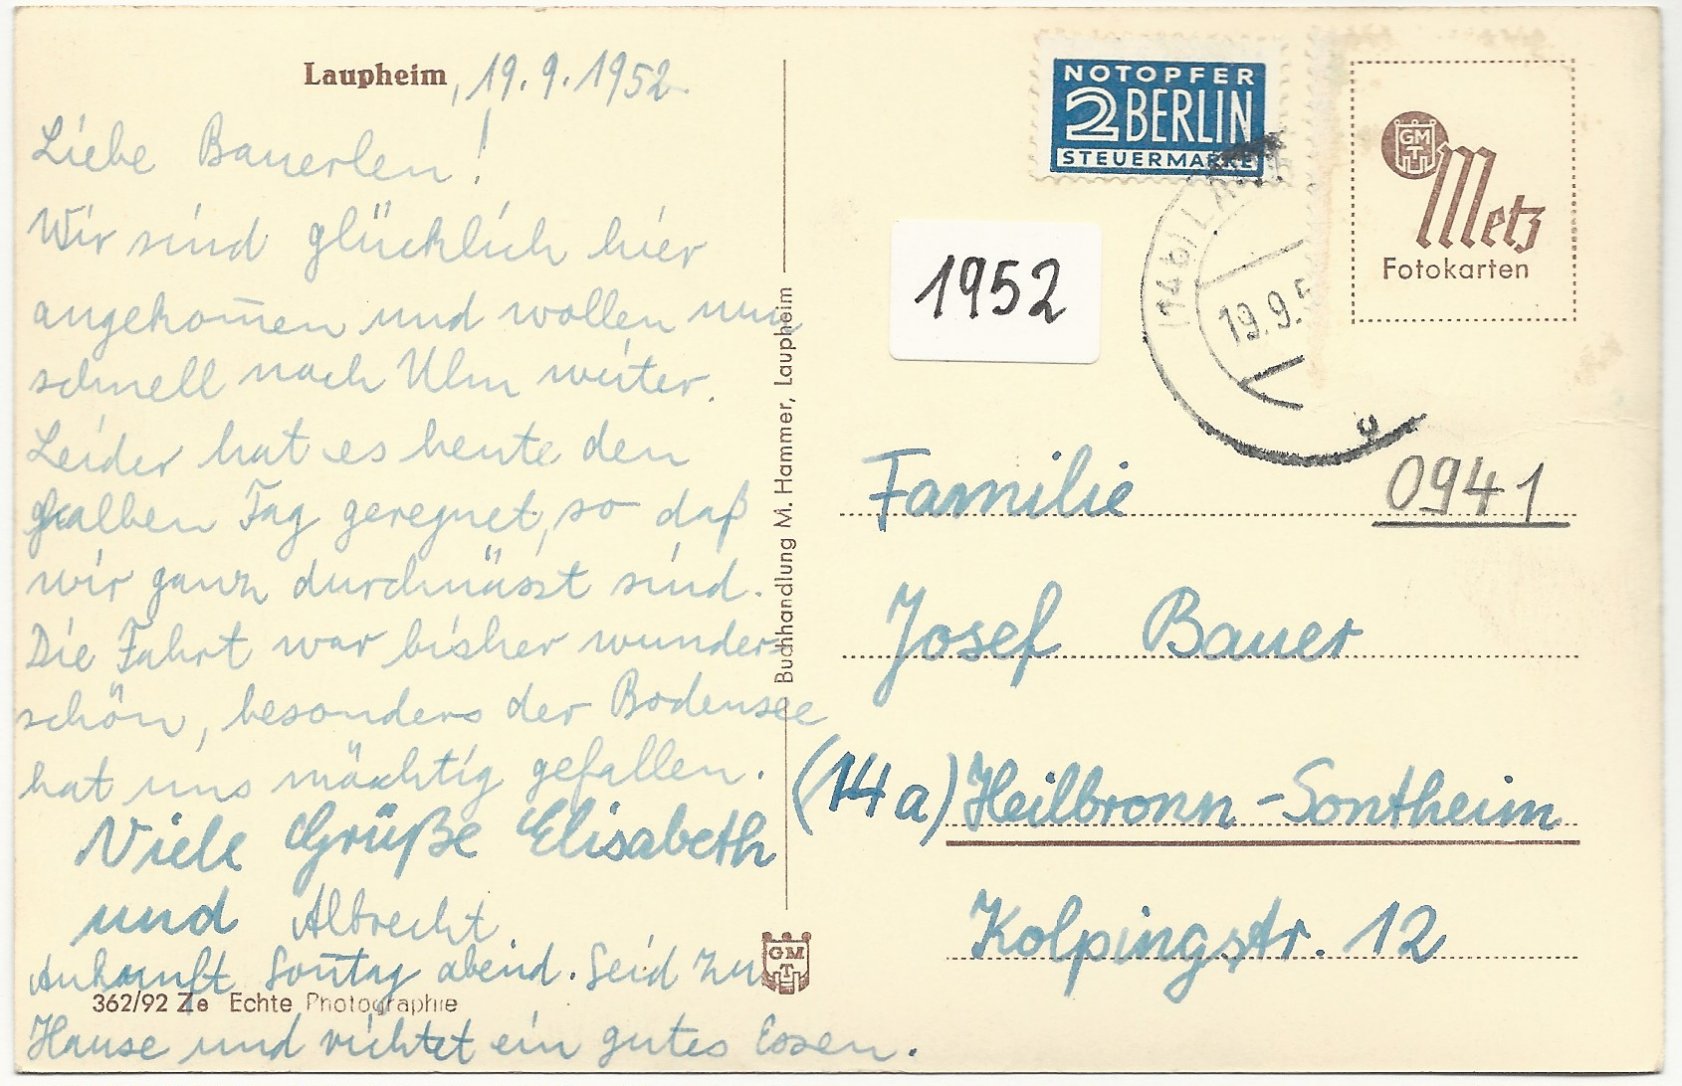 Laupheim, 19.9.1952.
Liebe Bauerlen!
Wir sind glücklich hier
angekom̄en und wollen nun
schnell nach Ulm weiter.
Leider hat es heute den
halben Tag geregnet, so daß
wir ganz durchnässt sind.
Die Fahrt war bisher wunder-
schön, besonders der Bodensee
hat uns mächtig gefallen.
Viele Grüße Elisabeth
und Albrecht
Ankunft Son̄tag abend. Seid zu
Hause und richtet ein gutes Essen.
362/92 Ze Echte Photographie
Buchhandlung M. Hammer, Laupheim
GMT
NOTOPFER
2 BERLIN
STEUERMARKE
1952
(14b) LAU
19.9.5
GMT
Metz
Fotokarten
0941
Familie
Josef Bauer
(14a) Heilbronn-Sontheim
Kolpingstr. 12